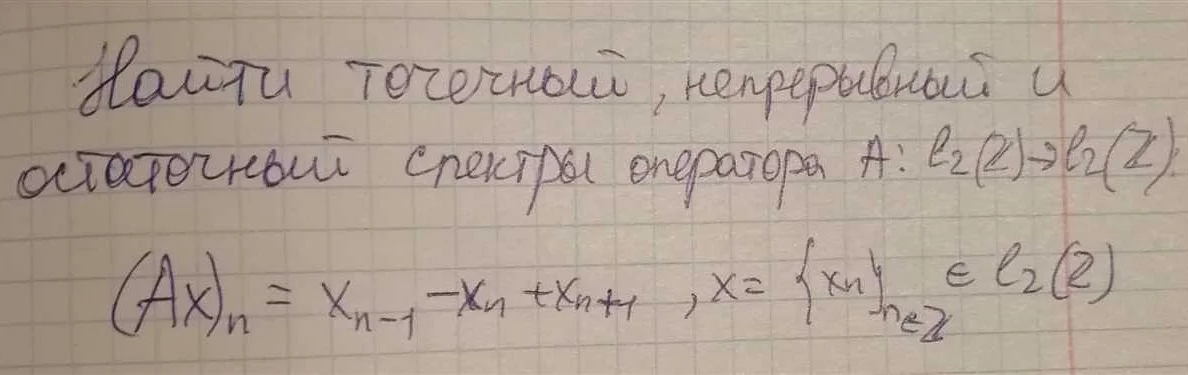 Найти точечный, непрерывный и
остаточный спектры оператора A: l₂(ℤ)→l₂(ℤ):
(Ax)ₙ = xₙ₋₁ - xₙ + xₙ₊₁, x = {xₙ}ₙ∈ℤ ∈ l₂(ℤ)